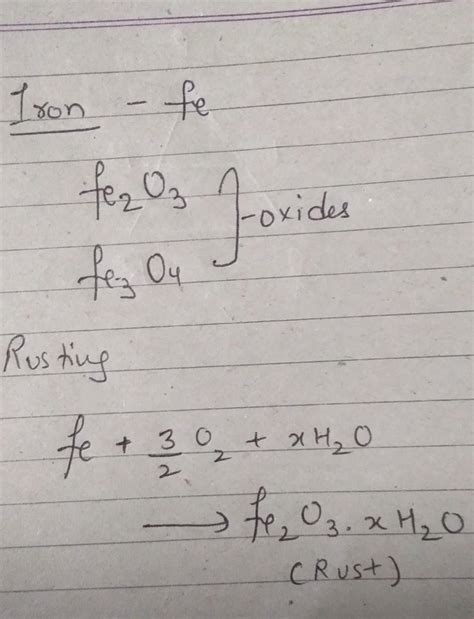 Iron - fe
fe2O3
fe3O4
-oxides
Rusting
fe + 3/2 O2 + xH2O
⟶ fe2O3.xH2O
(Rust)